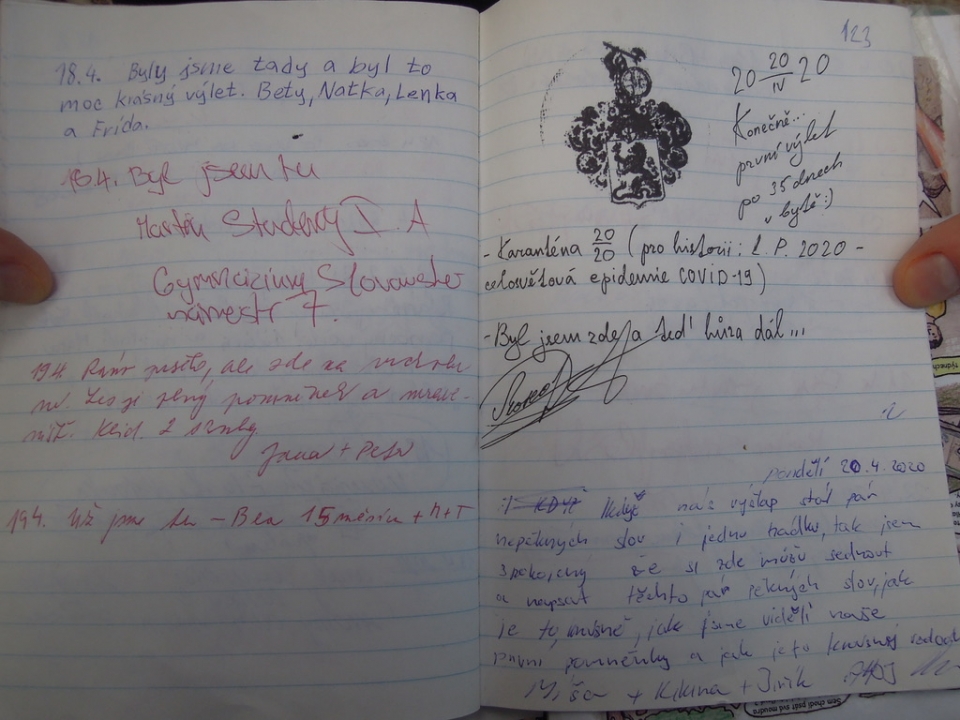 18.4. Byly jsme tady a byl to
moc krásný výlet. Bety, Natka, Lenka
a Frída.
18.4. Byl jsem tu
Martin I. A
Gymnázium Slovanské
náměstí 7.
19.4. Ráno pusto, ale zde za
a
Klid. 2
Jana + Petr
19.4. Už jsme tu – Bea 15 měsíců + h + T
123
20 20/IV 20
Konečně...
první výlet
po 35 dnech
v bytě :)
- Karanténa 20/20 (pro historii: L. P. 2020 -
celosvětová epidemie COVID-19)
- Byl jsem zde, a teď hůra dál...
pondělí 20.4.2020
KDYŽ Když náš výšlap stál pár
nepěkných slov i jednu hádku, tak jsem
spokojený že si zde můžu sednout
a napsat těchto pár pěkných slov, jak
je to, jak jsme viděli naše
první pomněnky a jak je to
Míša + Kikina + Jiřík AHOJ
Sem chodí psát svá moudra